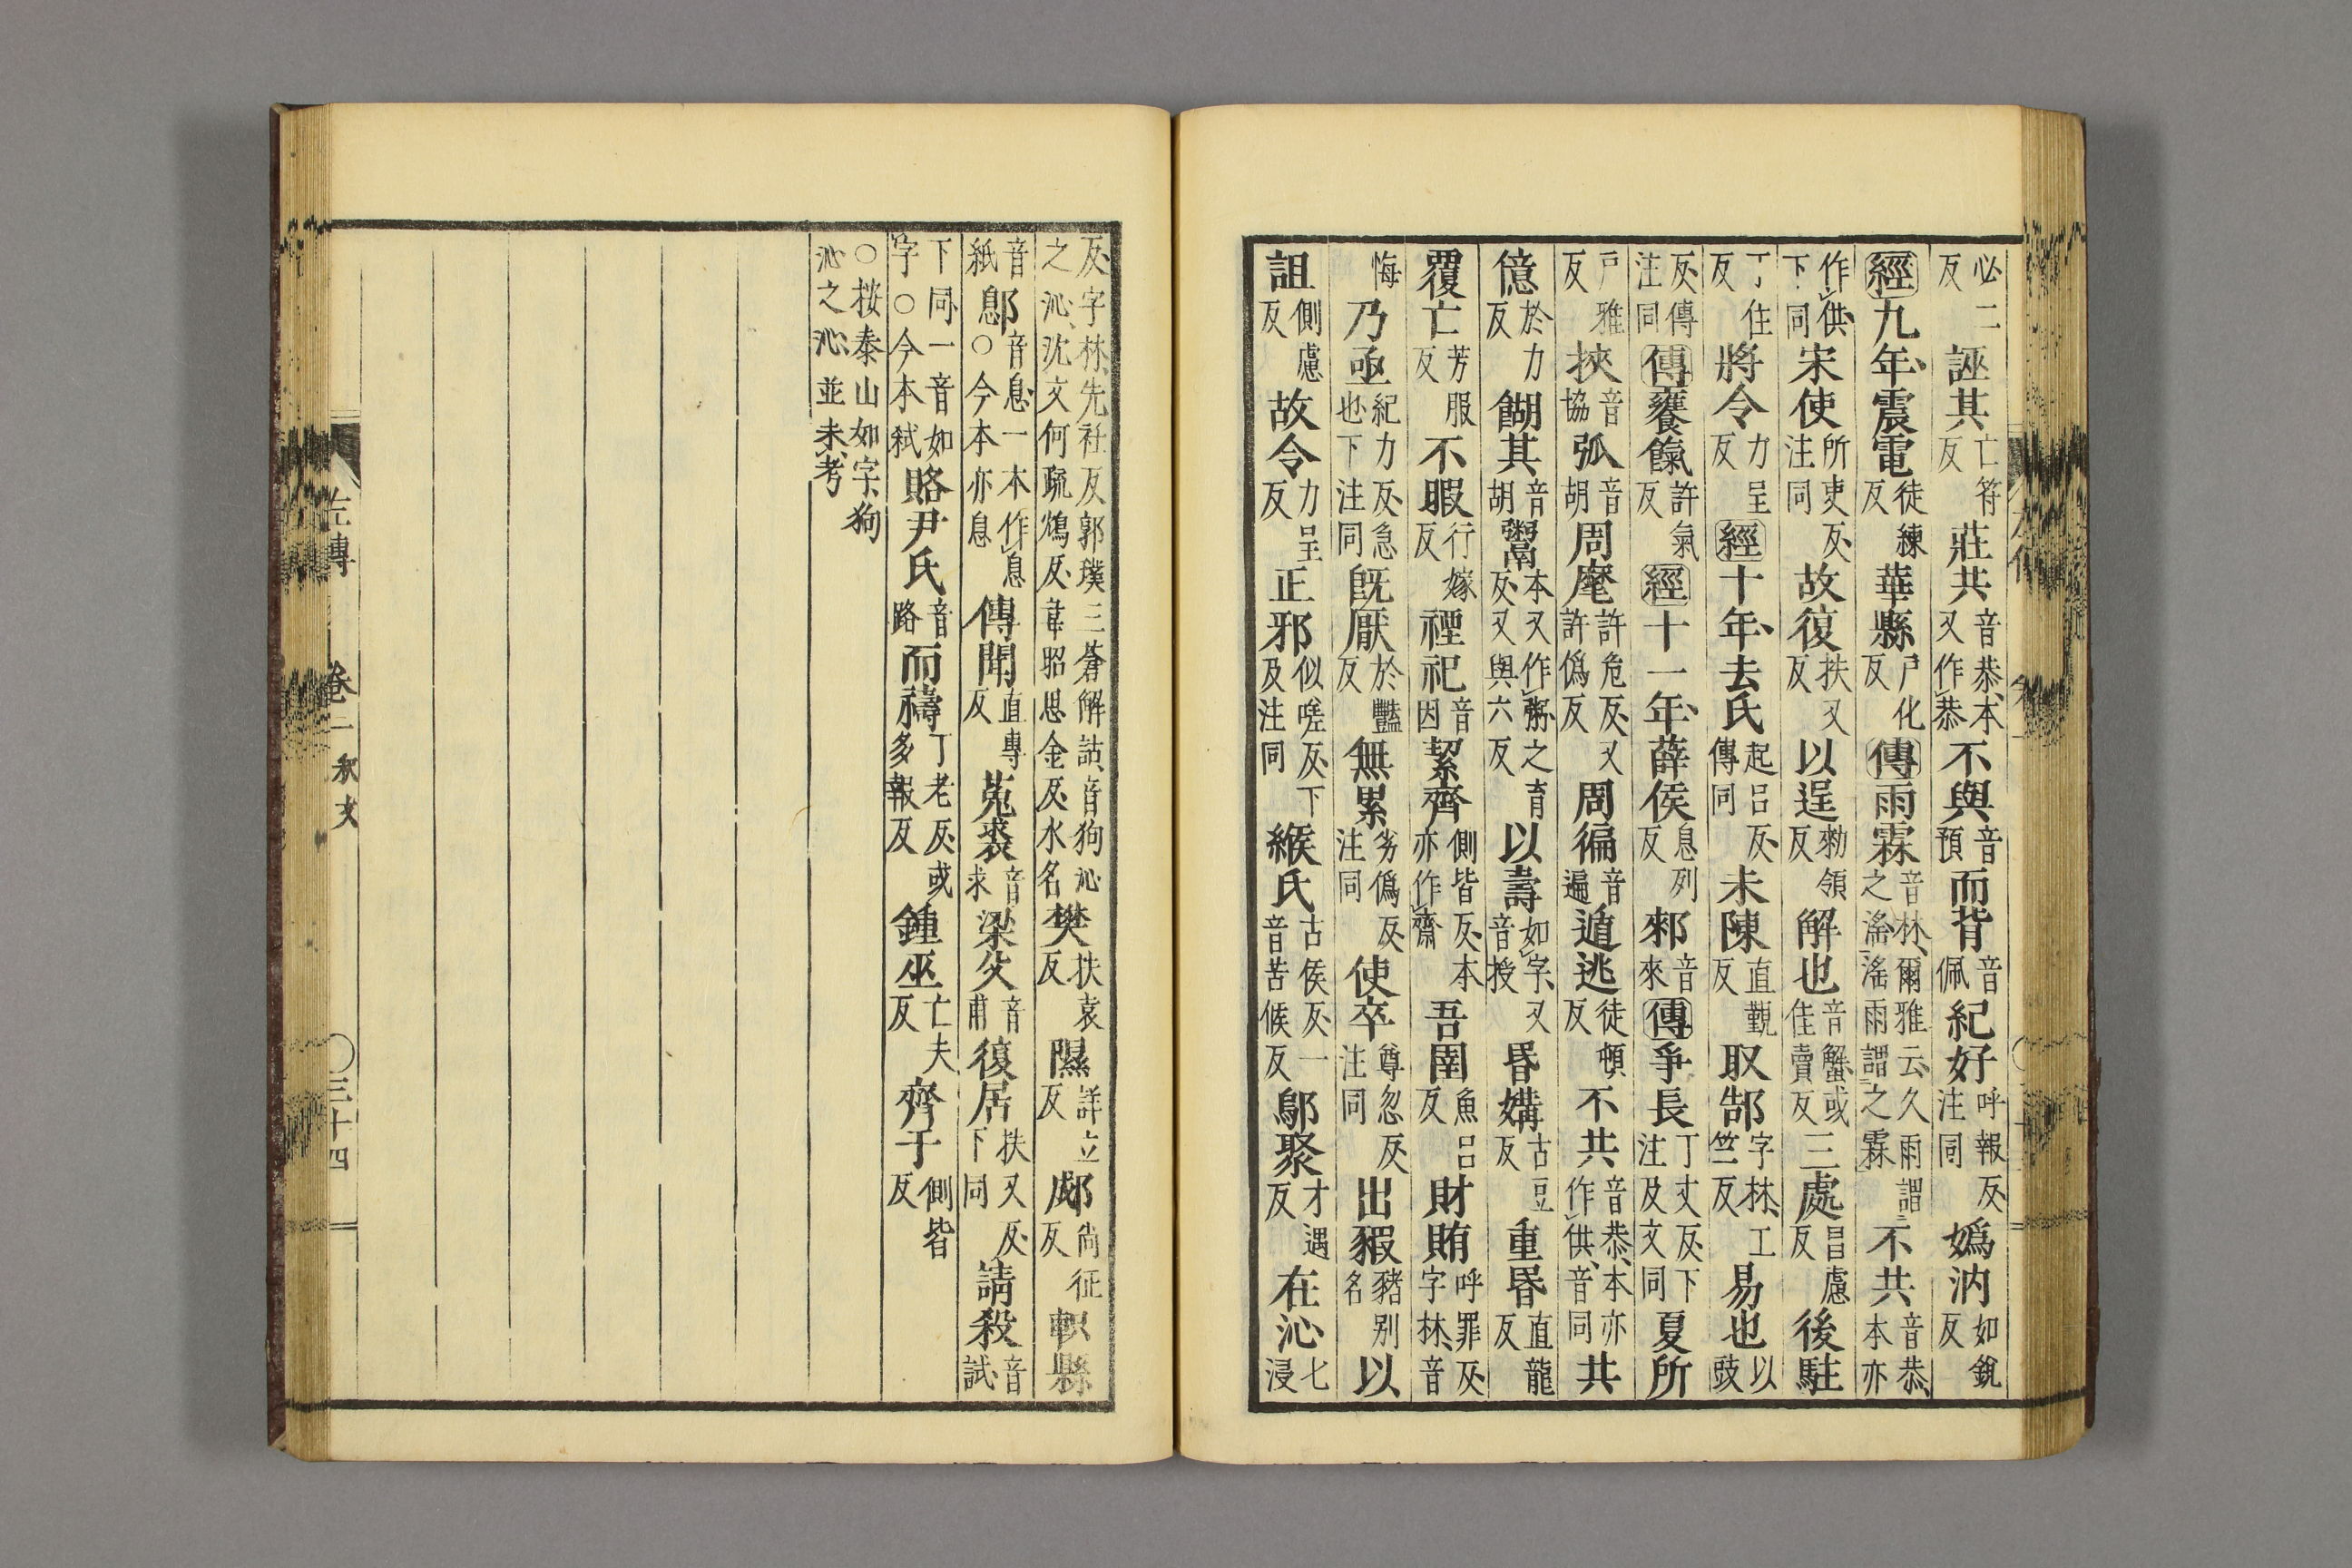 必二反誣其亡符反莊共音恭本又作恭不與音預而背音佩紀好呼報反注同嬀汭如銳反
經九年震電徒練反華縣戶化反傳雨霖音林爾雅云久雨謂之淫淫雨謂之霖不共音恭本亦
作供下同宋使所吏反注同故復扶又反以逞勑領反解也音蟹或佳賣反三處昌慮反後駐
丁住反將令力呈反經十年去氏起呂反傳同未陳直覲反取郜字林工竺反易也以豉
反傳注同傳饔餼許氣反經十一年薛侯息列反郲音來傳爭長丁丈反下注及文同夏所
戶雅反挾音協弧音胡周麾許危反又許僞反周徧音遍遁逃徒頓反不共音恭本亦作供音同共
億於力反餬其音胡鬻本又作粥之育反又與六反以壽如字又音授昬媾古豆反重昬直龍反
覆亡芳服反不暇行嫁反禋祀音因絜齊側皆反本亦作齋吾圉魚呂反財賄呼罪反字林音
悔乃亟紀力反急也下注同旣厭於豔反無累劣僞反注同使卒尊忽反注同出豭豬別名以
詛側慮反故令力呈反正邪似嗟反下及注同緱氏古侯反一音苦候反鄔聚才遇反在沁七浸
反字林先社反郭璞三蒼解詁音狗沁之沁沈文何疏鴆反韋昭思金反水名樊扶袁反隰詳立反郕尙征反軹縣
音紙鄎音息一本作息○今本亦息傳聞直專反菟裘音求梁父音甫復居扶又反下同請殺音試
下同一音如字○今本弒賂尹氏音路而禱丁老反或多報反鍾巫亡夫反齊于側皆反
○按泰山如字狗沁之沁並未考
左傳 卷二 釈文 ○三十四